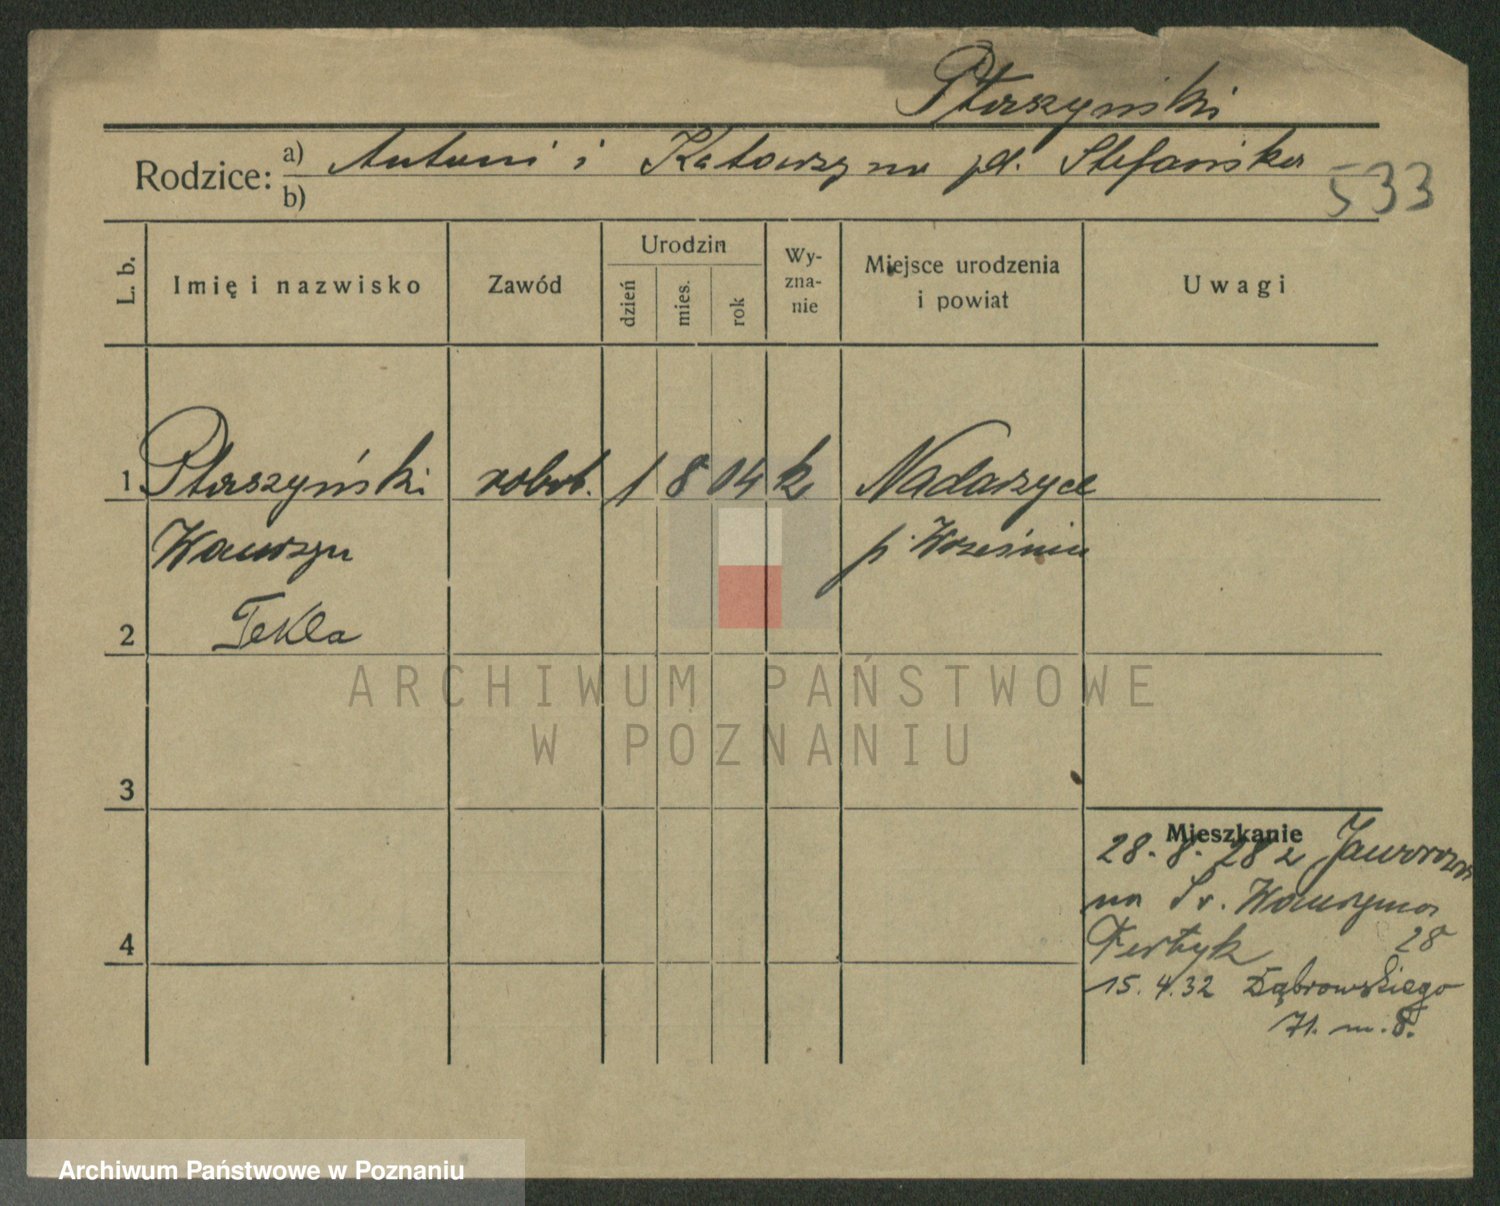 Ptaszyński
Rodzice: a) Antoni i Katarzyna zd. Stefańska
b)
533
L. b.
Imię i nazwisko
Zawód
Urodzin
dzień
mies.
rok
Wy-
zna-
nie
Miejsce urodzenia
i powiat
Uwagi
1 Ptaszyński robot. 1 8 04 k Nadarzyce
Wawrzyn p. Września
2 Tekla
ARCHIWUM PAŃSTWOWE
W POZNANIU
3
Mieszkanie
28. 8. 28 z
na Św. Wawrzyńca
4 28
15. 4. 32 Dąbrowskiego
71. m. 8.
Archiwum Państwowe w Poznaniu